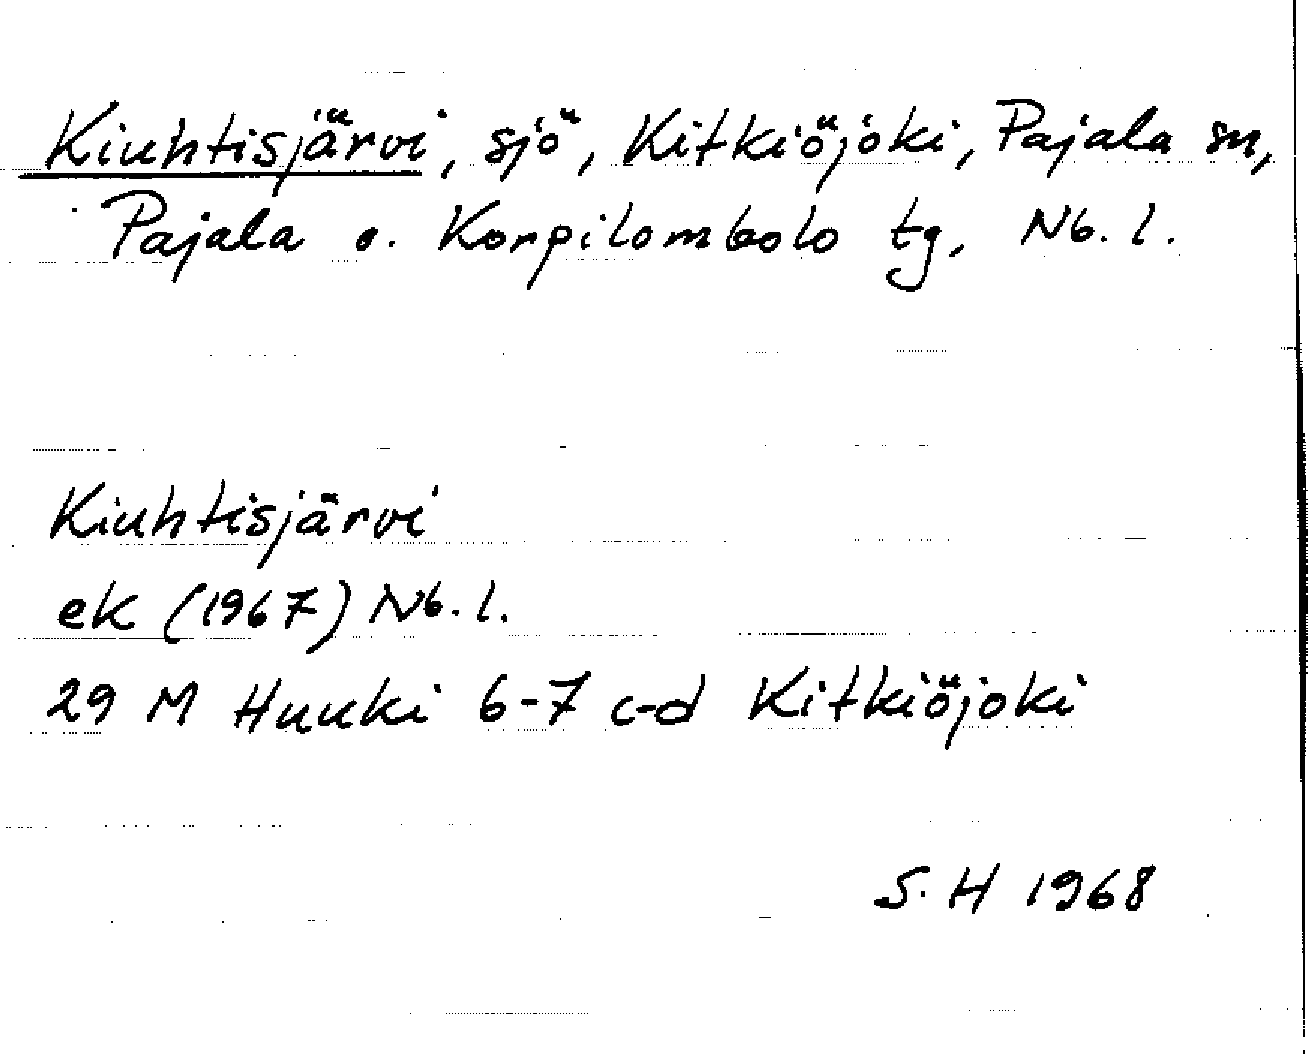 Kiuhtisjärvi, sjö, Kitkiöjoki, Pajala sn,
Pajala o. Korpilombolo tg, Nb. l.
Kiuhtisjärvi
ek (1967) Nb. l.
29 M Huuki 6-7 c-d Kitkiöjoki
S. H 1968